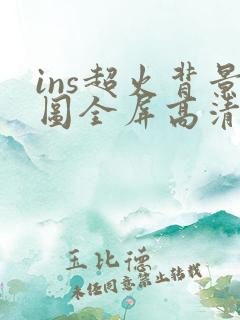 ins超火背景
图全屏高清
王比德
未经同意禁止转载